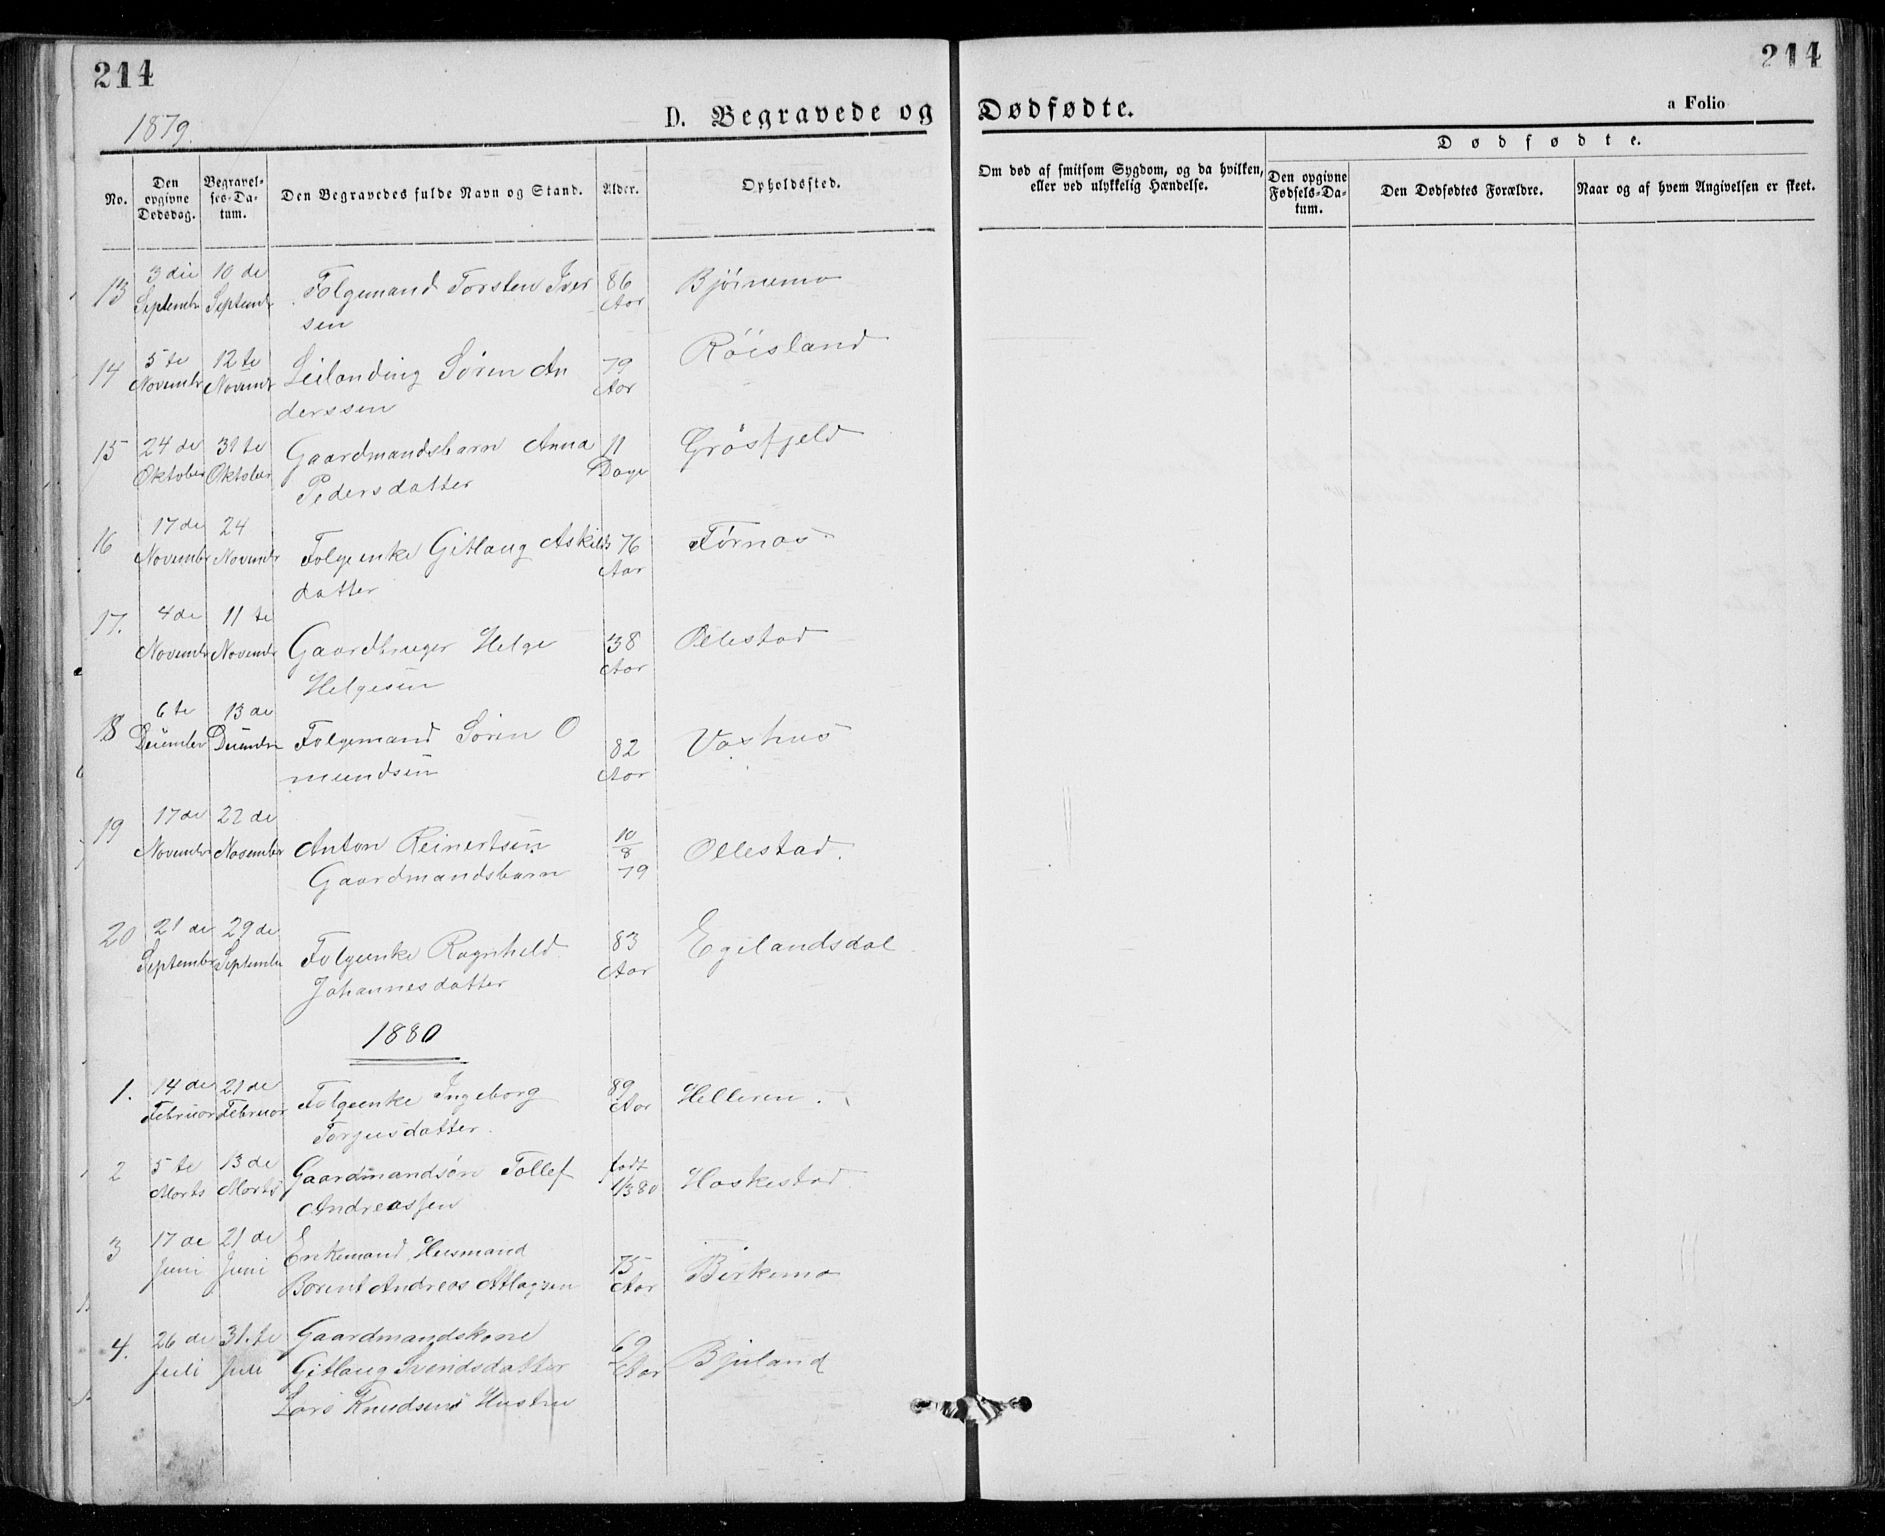 214
214
1879.
D. Begravede og Dødfødte.
a Folio
No.
Den opgivne Dødsdag.
Begravelses-Datum.
Den Begravedes fulde Navn og Stand.
Alder.
Opholdssted.
Om død af smitsom Sygdom, og da hvilken, eller ved ulykkelig Hændelse.
Dødfødte.
Den opgivne Fødsels-Datum.
Den Dødfødtes Forældre.
Naar og af hvem Angivelsen er skeet.
13 3die Septembr 10de Septembr Folgemand Torsten Iver
sen 86 Aar Bjørnemo
14 5te Novembr 12te Novembr Leilending Søren An
derssen 79 Aar Røisland
15 24de Oktober 31te Oktober Gaardmandsbarn Anna
Pedersdatter 11 Dage Grøsfjeld
16 17de Novembr 24 Novembr Folgeenke Gitlaug Askilds
datter 76 Aar Førnas
17. 4de Novembr 11te Novembr Gaardbruger Helge
Helgesen 38 Aar Ollestad
18 6te Decembr 13de Decembr Folgemand Søren O
mundsen 82 Aar Vashus
19 17de Novembr 22de November Anton Reinertsen
Gaardmandsbarn 10/8 79 Ollestad.
20 21de Septembr 29de Septembr Folgeenke Ragnhild
Johannesdatter 83 Aar Egelandsdal
1880
1. 14de Februar 21de Februar Folgeenke Ingeborg
Torjusdatter. 89 Aar Helleren.
2 5te Marts 13de Marts Gaardmandsøn Tollef
Andreassen født 1/3 80 Haskestad.
3 17de Juni 21de Juni Enkemand, Husmand
Borent Andreas Atlagsen 75 Aar Birkemo
4. 26de Juli 31.te Juli Gaardmandskone
Gitlaug Svendsdatter
Lars Knudsens Hustru 69 Aar Bjuland